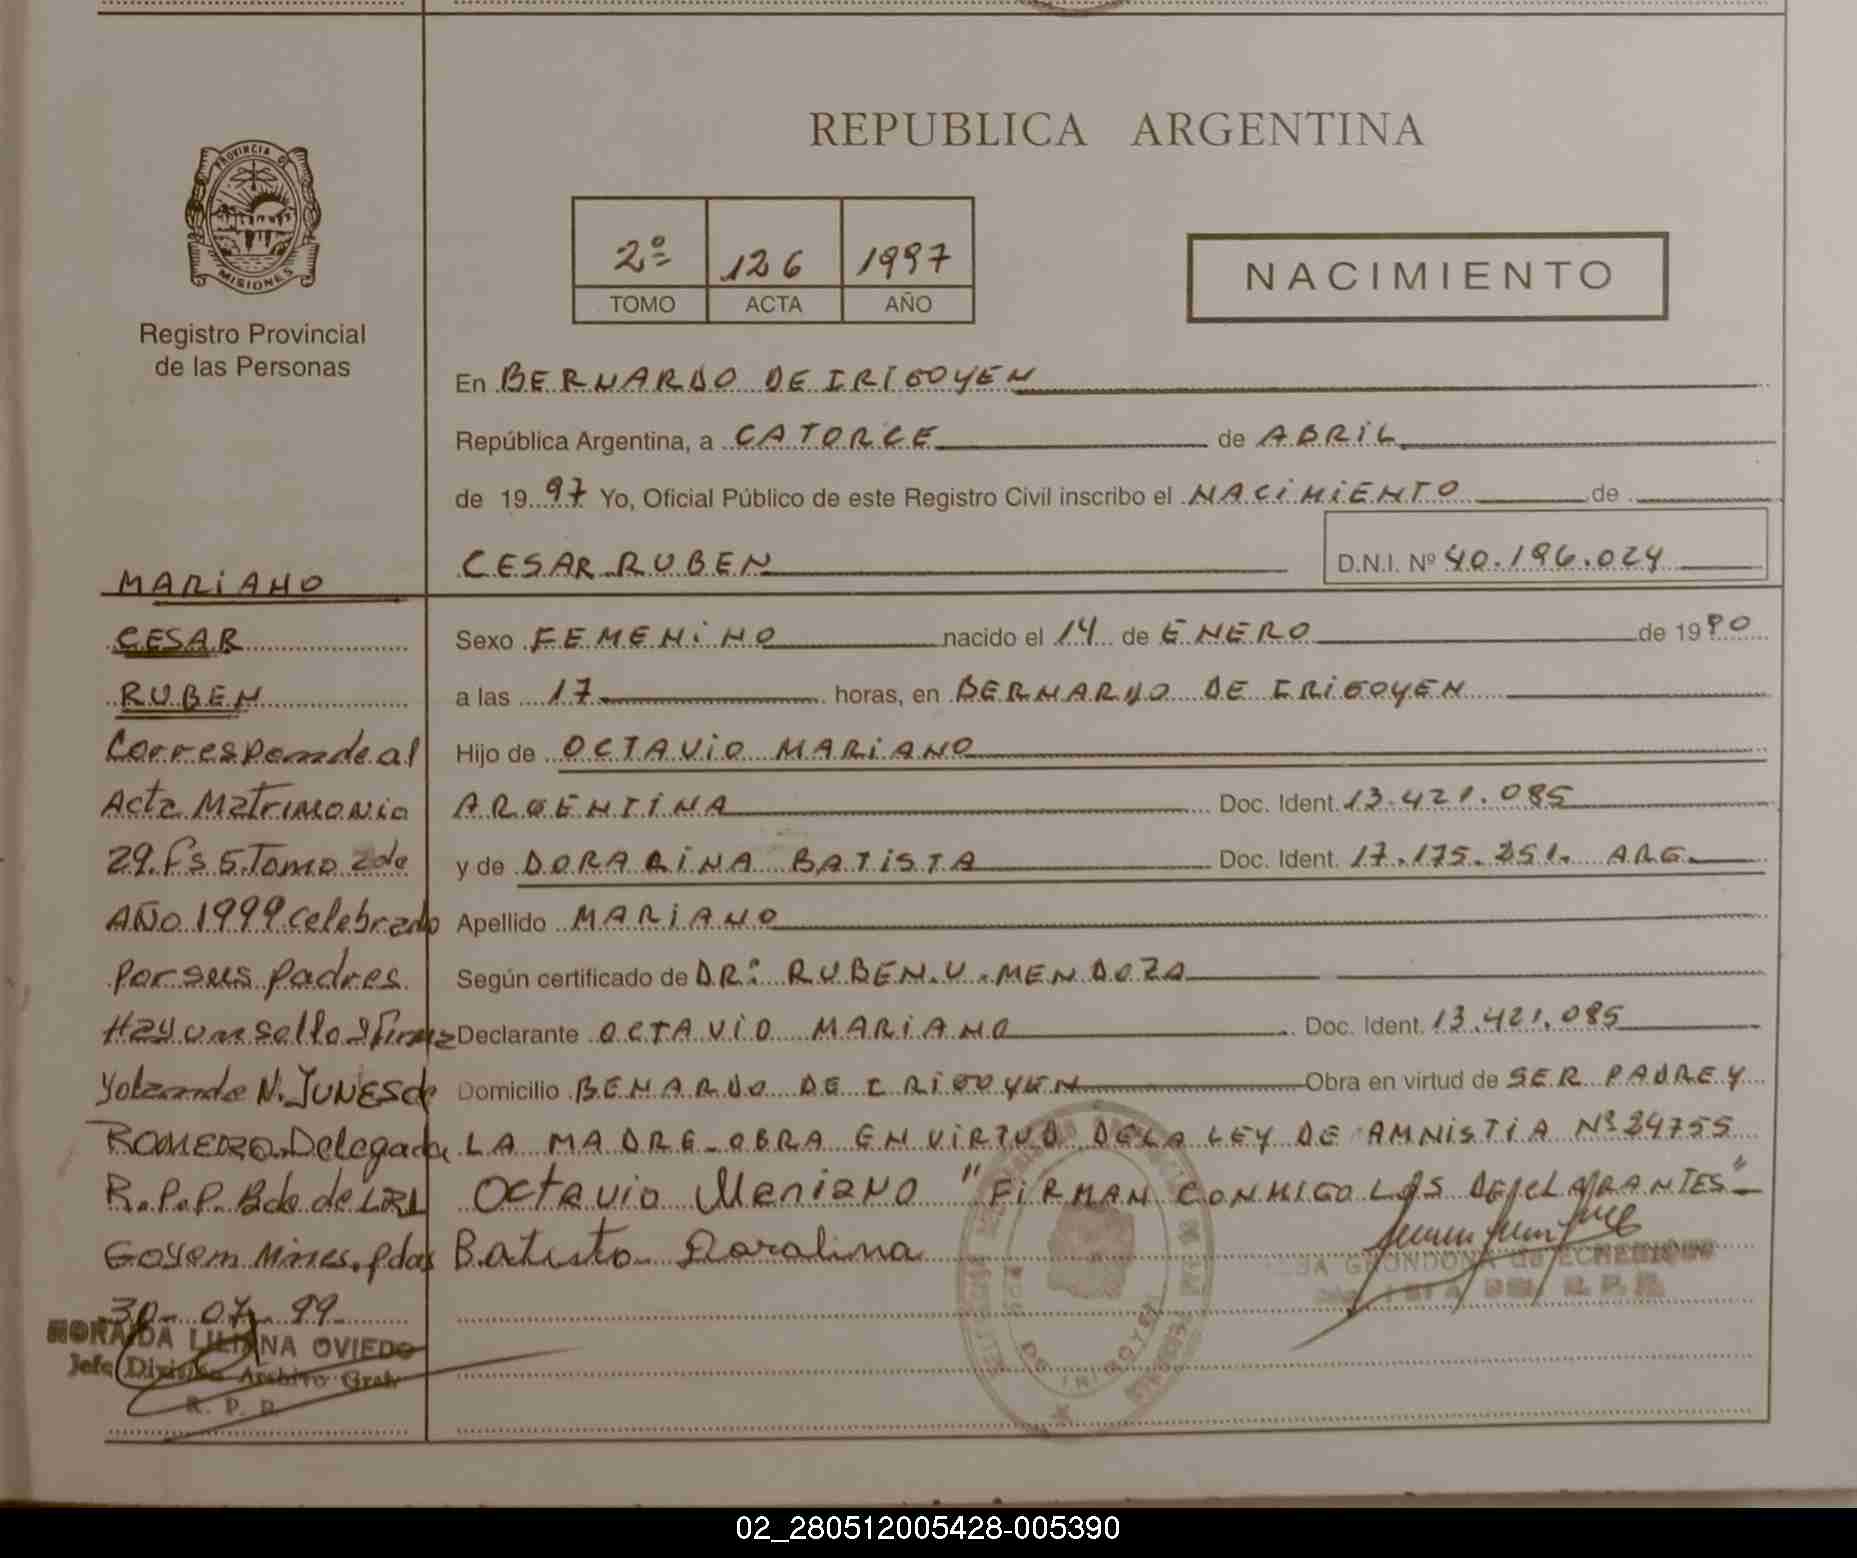 REPUBLICA ARGENTINA
PROVINCIA DE
MISIONES
Registro Provincial
de las Personas
2º 126 1997
TOMO ACTA AÑO
NACIMIENTO
En BERNARDO DE IRIGOYEN
República Argentina, a CATORCE de ABRIL
de 1997 Yo, Oficial Público de este Registro Civil inscribo el NACIMIENTO de
CESAR RUBEN D.N.I. Nº 40.196.024
Sexo FEMENINO nacido el 14 de ENERO de 19
a las 17 horas, en BERNARDO DE IRIGOYEN
Hijo de OCTAVIO MARIANO
ARGENTINA Doc. Ident. 13.421.085
y de DORALINA BATISTA Doc. Ident. 17.175.251. ARG.
Apellido MARIANO
Según certificado de DR: RUBEN.V.MENDOZA
Declarante OCTAVIO MARIANO Doc. Ident. 13.421.085
Domicilio BENARDO DE IRIGOYEN Obra en virtud de SER PADRE Y
LA MADRE-OBRA EN VIRTUD DE LA LEY DE AMNISTIA Nº 24755
Octavio Mariano "FIRMAN CONMIGO LOS DECLARANTES"
Batista Doralina
GRONDONA de ECHEGUIGUE
DE IRIGOYEN
MARIANO
CESAR
RUBEN
Corresponde al
Acta Matrimonio
29. Fs 5. Tomo 2do
AÑo 1999 celebrado
por sus padres.
Hay un sello y firma
Yolanda N. JUNES de
ROMERO. Delegada
R.P.P. Bdo de IRI
Goyen Mnes. pdas
30-07-99
LILIANA OVIEDO
Jefe División Archivo Gral.
R. P. P.
02_280512005428-005390